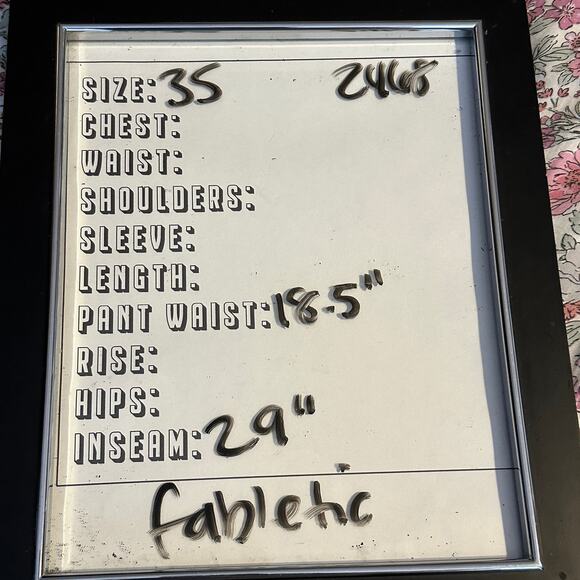 SIZE: 35 2468
CHEST:
WAIST:
SHOULDERS:
SLEEVE:
LENGTH:
PANT WAIST: 18.5"
RISE:
HIPS:
INSEAM: 29"
fabletic